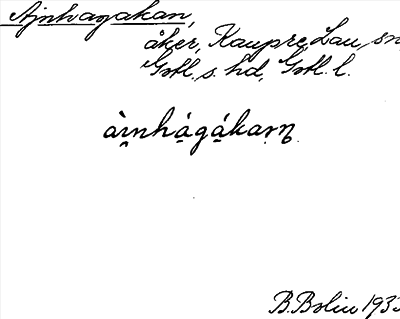 Ajnhagakan,
åker, Kaupre, Lau, sn
Gotl. s. hd, Gotl. l.
ài̯nhа̣̀gа̣́kaṛn
B. Bolin 193